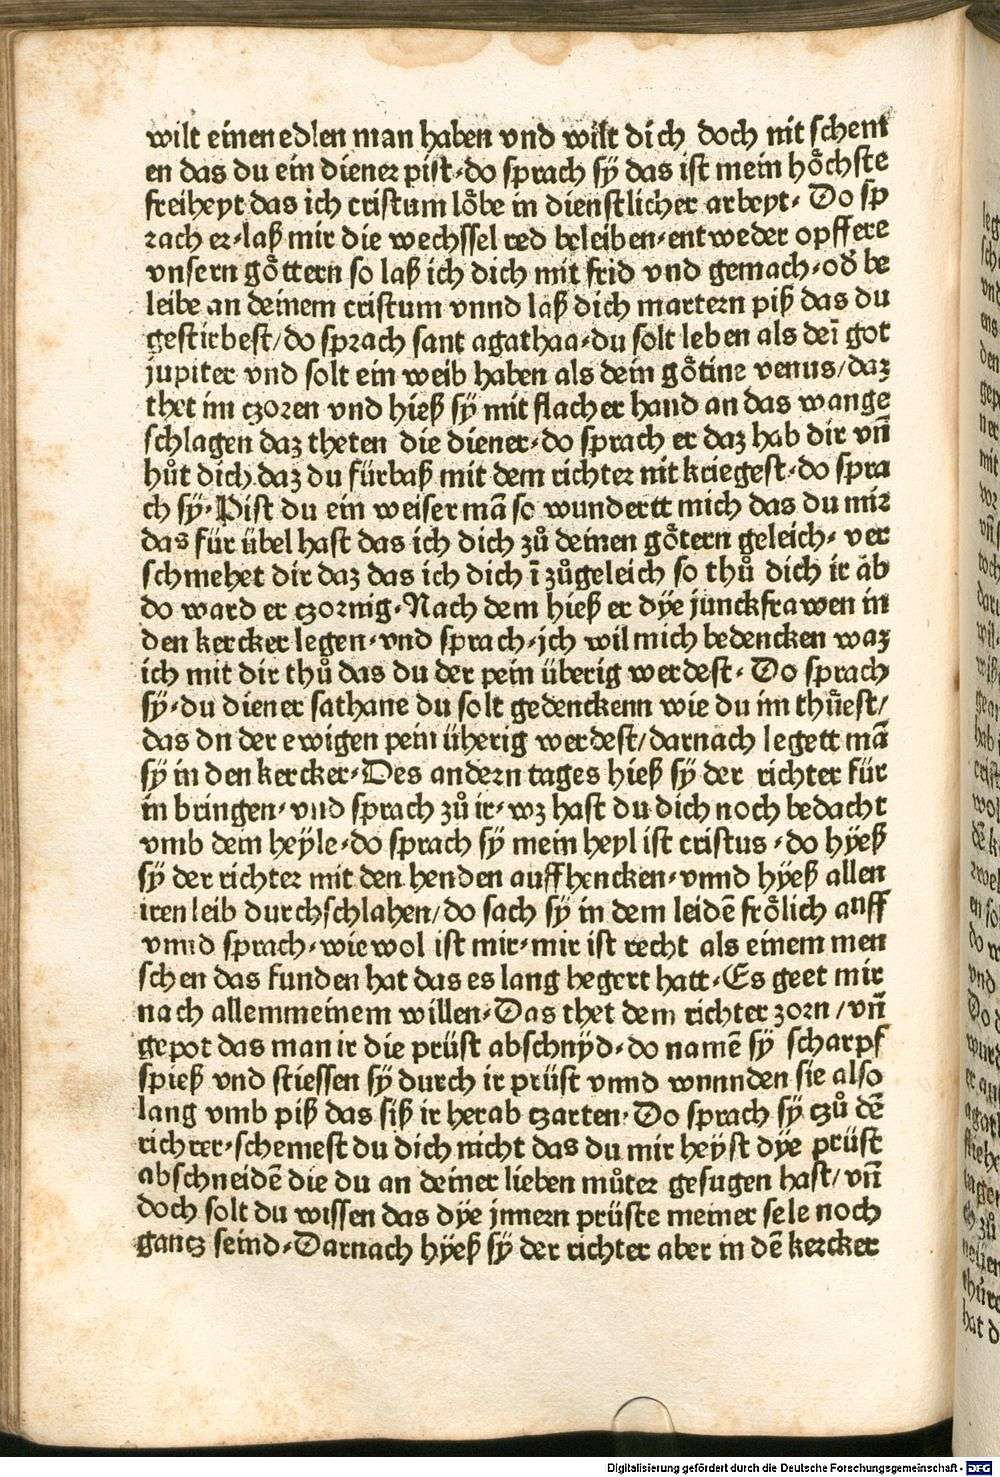 wilt einen edlen man haben vnd wilt dich doch nit schem
en das du ein diener pist·do sprach sÿ das ist mein hoͤchste
freiheyt das ich cristum loͤbe in dienstlicher arbeyt· Do sp̄
rach er·laß mir die wechssel red beleiben·entweder opffere
vnsern goͤttern so laß ich dich mit frid vnd gemach·od̄ be
leibe an deinem cristum vnnd laß dich martern piß das du
gestirbest/do sprach sant agathaa·du solt leben als dei̅ got
jupiter vnd solt ein weib haben als dein goͤtine venus/daz
thet im czoren vnd hieß sÿ mit flacher hand an das wange
schlagen daz theten die diener·do sprach er daz hab dir vn̄
huͤt dich daz du fürbaß mit dem richter nit kriegest·do spra
ch sÿ·Pist du ein weiser mā so wundertt mich das du mir
das für übel hast das ich dich zuͦ deinen goͤtern geleich· ver
schmehet dir daz das ich dich ī zuͦgeleich so thuͦ dich ir āb
do ward er czornig·Nach dem hieß er dÿe junckfrawen in
den kercker legen·vnd sprach·jch wil mich bedencken waz
ich mit dir thuͦ das du der pein überig werdest· Do sprach
sÿ·du diener sathane du solt gedenckenn wie du im thuͤest/
das dn der ewigen pein üherig werdest/darnach legett mā
sÿ in den kercker·Des andern tages hieß sÿ der richter für
in bringen·vnd sprach zuͦ ir·wz hast du dich noch bedacht
vmb dem heÿle·do sprach sÿ mein heyl ist cristus·do hÿeß
sÿ der richter mit den henden auffhencken·vnnd hÿeß allen
iren leib durchschlahen/do sach sÿ in dem leidē froͤlich auff
vnnd sprach·wie wol ist mir·mir ist recht als einem men
schen das funden hat das es lang hegert hatt·Es geet mir
nach allem meinem willen·Das thet dem richter zorn/vn̄
gepot das man ir die prüst abschnÿd·do namē sÿ scharpf
spieß vnd stiessen sÿ durch ir prüst vnnd wnnnden sie also
lang vmb piß das siß ir herab czarten·Do sprach sÿ czuͦ dē
richrer·schemest du dich nicht das du mir heÿst dÿe prüst
abschneidē die du an deiner lieben muͦter gesugen hast/vn̄
doch solt du wissen das dÿe jnnern prüste meiner sele noch
gancz seind·Darnach hÿeß sÿ der richter aber in dē kercker
Digitalisierung gefördert durch die Deutsche Forschungsgemeinschaft - DFG